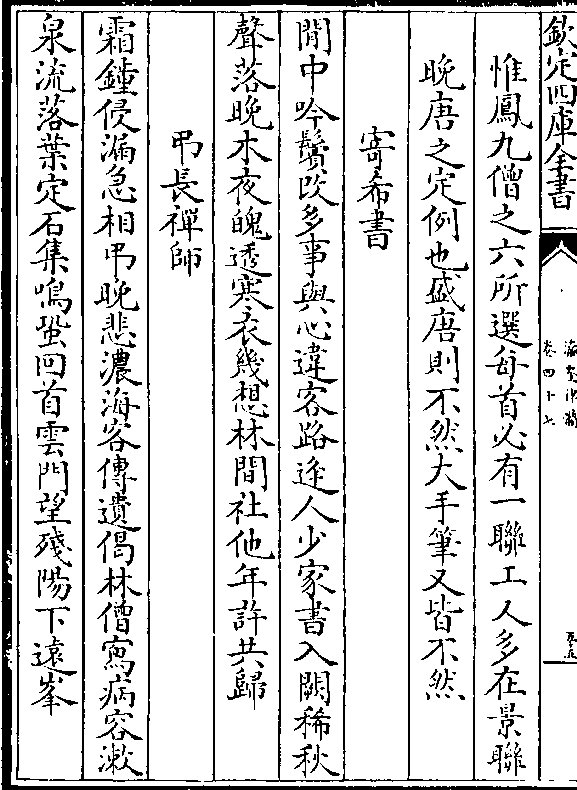 欽定四庫全書
卷四十七
惟鳳九僧之六所選每首必有一聯工人多在景聯
晚唐之定例也盛唐則不然大手筆又皆不然
寄希晝
閒中吟鬢改多事與心違客路逢人少家書入關稀秋
聲落晚木夜魄透寒衣幾想林間社他年許共歸
弔長禪師
霜鍾侵漏急相弔晚悲濃海客傳遺偈林僧寫病容漱
泉流落葉定石集鳴蛩回首雲門望殘陽下遠峯